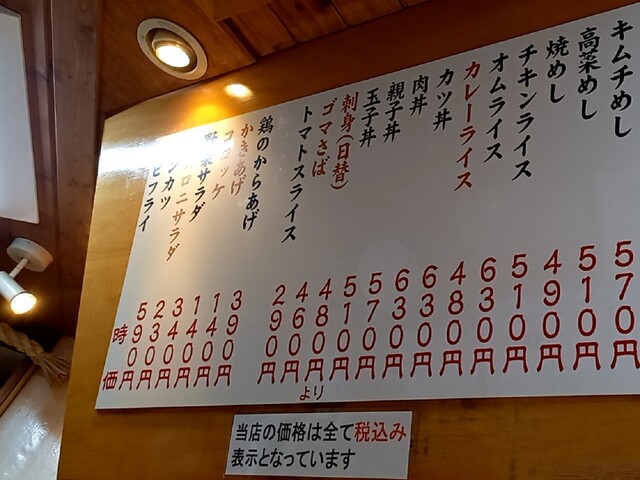 キムチめし 570円
高菜めし 510円
焼めし 490円
チキンライス 510円
オムライス 630円
カレーライス 480円
カツ丼 630円
肉丼 630円
親子丼 570円
玉子丼 510円
刺身(日替) 480円より
ゴマさば 460円
トマトスライス 290円
鶏のからあげ 390円
かきあげ 140円
コロッケ 140円
野菜サラダ 340円
ロニサラダ 230円
ンカツ 590円
ビフライ 時価
当店の価格は全て税込み
表示となっています